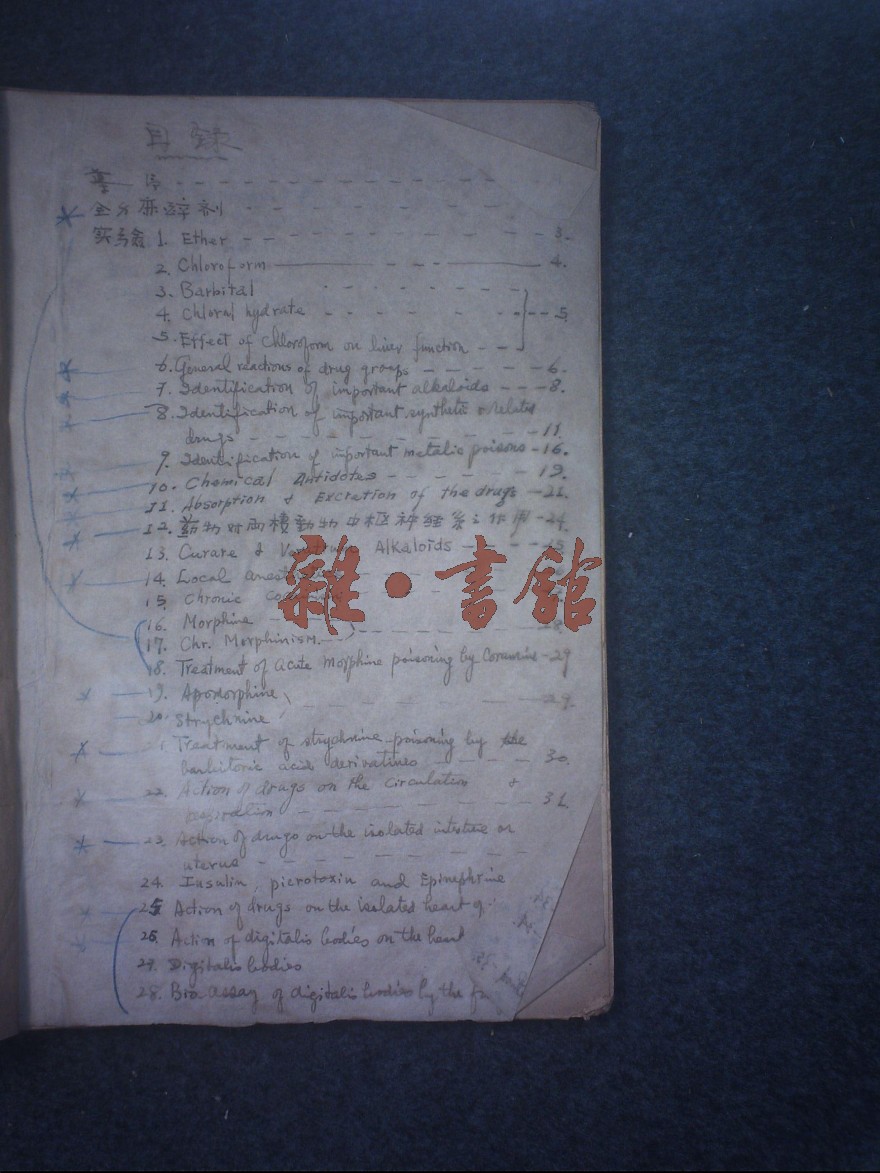 目錄
全身麻醉剂
实驗 1. Ether 3.
2. Chloroform 4.
3. Barbital
4. Chloral hydrate 5.
5. Effect of chloroform on liver function
6. General reactions of drug groups 6.
7. Identification of important alkaloids 8.
8. Identification of important synthetic & related
drugs 11.
9. Identification of important metalic poisons 16.
10. Chemical Antidotes 19.
11. Absorption & Excretion of the drugs 21.
12. 葯物对两棲動物中枢神経系之作用 24.
13. Curare & Alkaloids
14. Local
15. Chronic
16. Morphine 28.
17. Chr. Morphinism.
18. Treatment of acute morphine poisoning by Coramine 29
19. Apomorphine 29.
20. Strychnine
21. Treatment of strychnine poisoning by the
barbitoric acid derivatives 30.
22. Action of drugs on the circulation &
respiration 31.
23. Action of drugs on the isolated intestine or
uterus
24. Insulin, picrotoxin and Epinephrine
25. Action of drugs on the isolated heart of
26. Action of digitalis bodies on the heart
27. Digitalis bodies
28. Bio assay of digitalis bodies by the
雜·書館